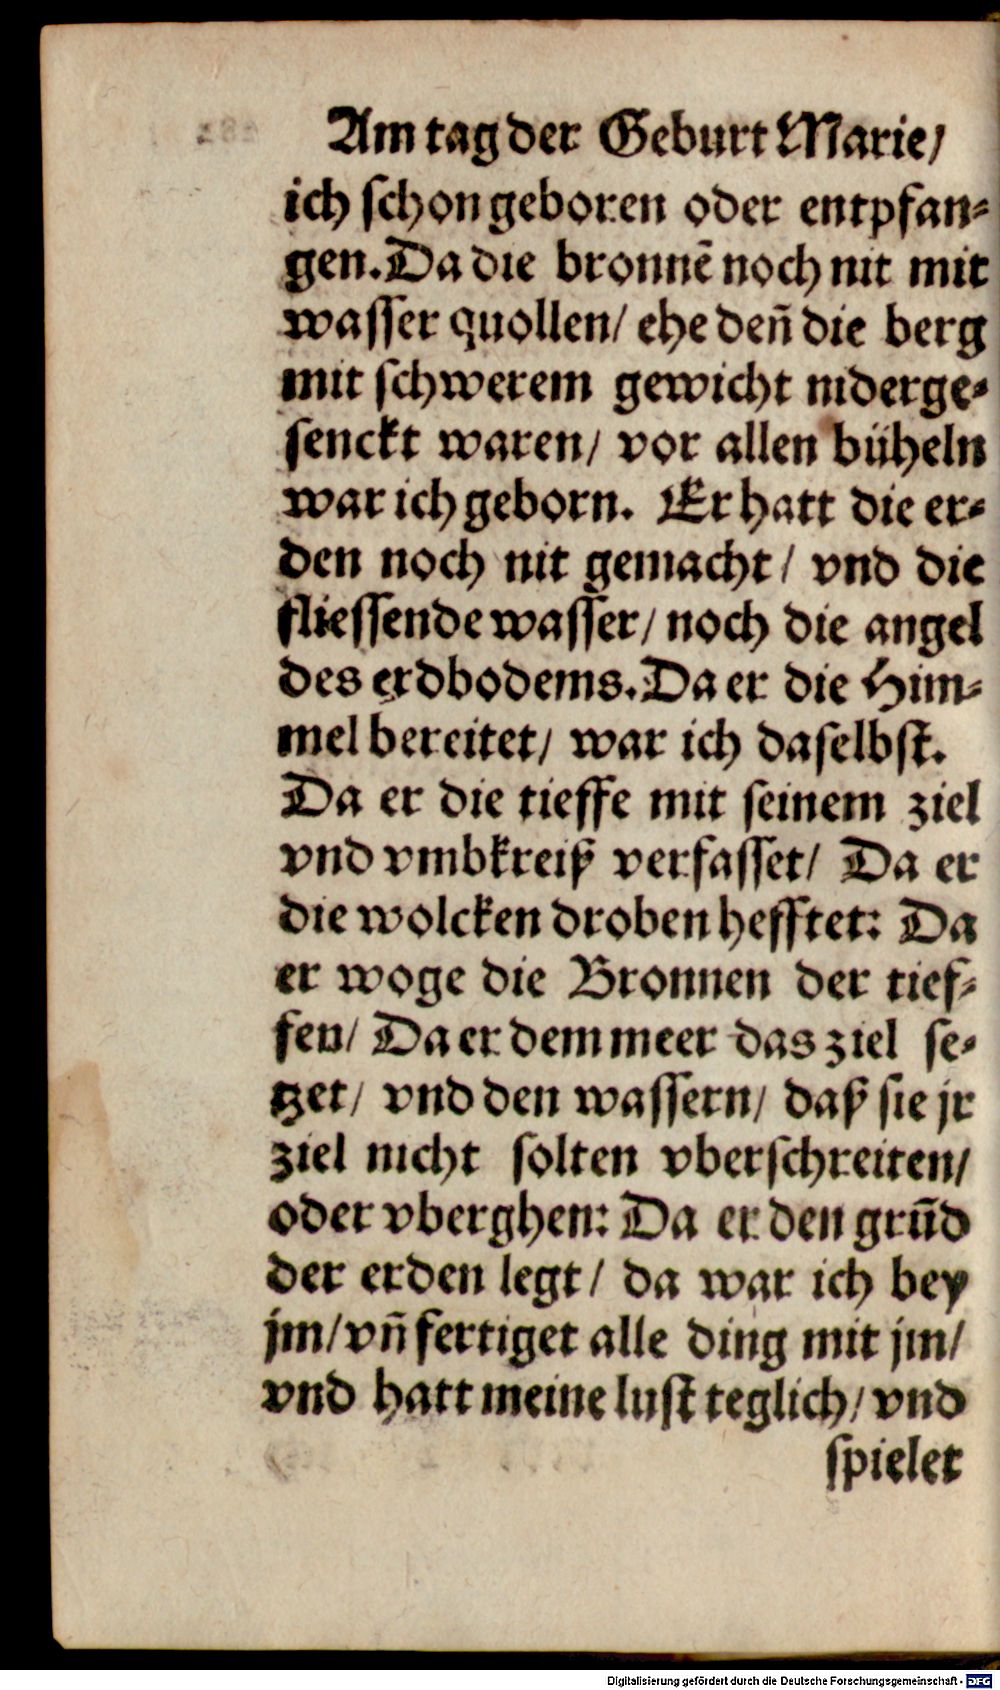 Am tag der Geburt Marie/
ich schon geboren oder entpfan⸗
gen. Da die bronnē noch nit mit
wasser quollen/ ehe den̄ die berg
mit schwerem gewicht niderge⸗
senckt waren/ vor allen büheln
war ich geborn. Er hatt die er⸗
den noch nit gemacht/ vnd die
fliessende wasser/ noch die angel
des erdbodems. Da er die Him⸗
mel bereitet/ war ich daselbst.
Da er die tieffe mit seinem ziel
vnd vmbkreiß verfasset/ Da er
die wolcken droben hefftet: Da
er woge die Bronnen der tief⸗
fen/ Da er dem meer das ziel se⸗
tzet/ vnd den wassern/ daß sie jr
ziel nicht solten vberschreiten/
oder vberghen: Da er den grūd
der erden legt/ da war ich bey
jm/ vn̄ fertiget alle ding mit jm/
vnd hatt meine lust teglich/ vnd
spielet
Digitalisierung gefördert durch die Deutsche Forschungsgemeinschaft - DFG